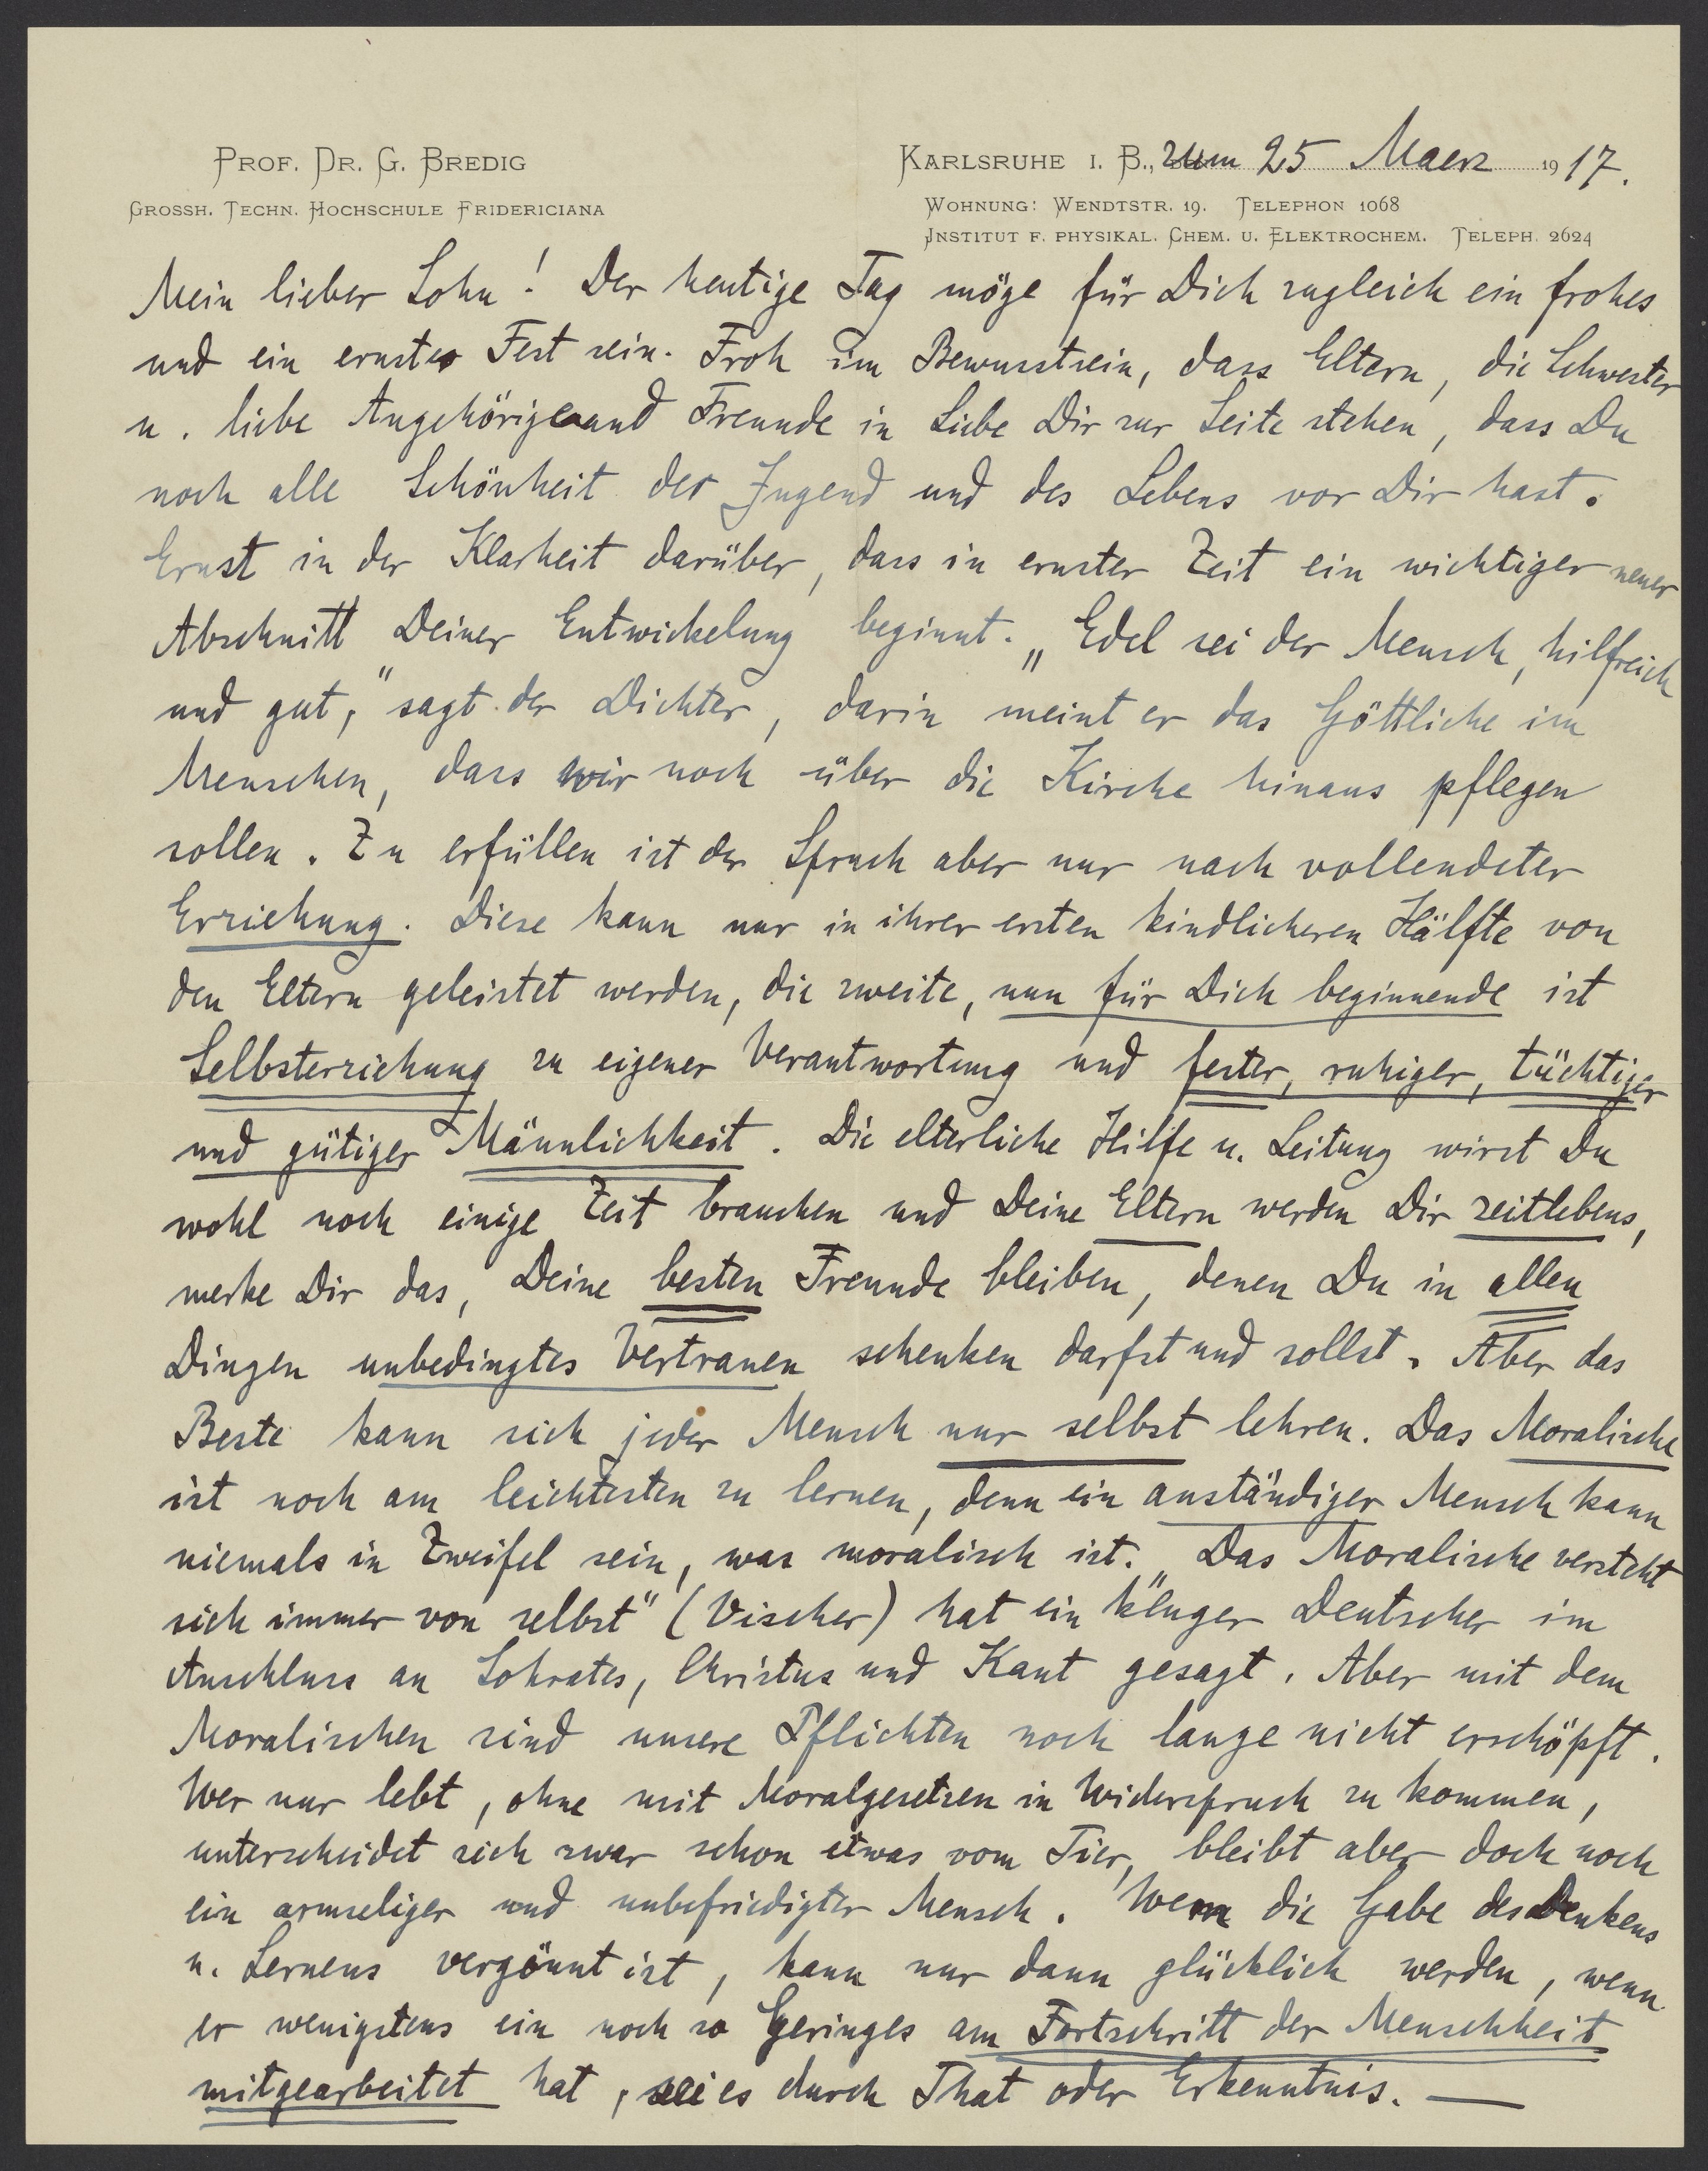 PROF. DR. G. BREDIG
GROSSH. TECHN. HOCHSCHULE FRIDERICIANA
KARLSRUHE I. B., zum 25 Maerz 1917.
WOHNUNG: WENDTSTR. 19. TELEPHON 1068
INSTITUT F. PHYSIKAL. CHEM. U. ELEKTROCHEM. TELEPH. 2624
Mein lieber Sohn! Der heutige Tag möge für Dich zugleich ein frohes
und ein ernstes Fest sein. Froh im Bewusstsein, dass Eltern, die Schwester
u. liebe Angehörige und Freunde in Liebe Dir zur Seite stehen, dass Du
noch alle Schönheit der Jugend und des Lebens vor Dir hast.
Ernst in der Klarheit darüber, dass in ernster Zeit ein wichtiger neuer
Abschnitt Deiner Entwickelung beginnt. „Edel sei der Mensch, hilfreich
und gut," sagt der Dichter, darin meint er das Göttliche im
Menschen, dass wir noch über die Kirche hinaus pflegen
sollen. Zu erfüllen ist der Spruch aber nur nach vollendeter
Erziehung. Diese kann nur in ihrer ersten kindlicheren Hälfte von
den Eltern geleistet werden, die zweite, nun für Dich beginnende ist
Selbsterziehung zu eigener Verantwortung und fester, ruhiger, tüchtiger
und gütiger Männlichkeit. Die elterliche Hilfe u. Leitung wirst Du
wohl noch einige Zeit brauchen und Deine Eltern werden Dir zeitlebens,
merke Dir das, Deine besten Freunde bleiben, denen Du in allen
Dingen unbedingtes Vertrauen schenken darfst und sollst. Aber das
Beste kann sich jeder Mensch nur selbst lehren. Das Moralische
ist noch am leichtesten zu lernen, denn ein anständiger Mensch kann
niemals in Zweifel sein, was moralisch ist. „Das Moralische versteht
sich immer von selbst" (Vischer) hat ein kluger Deutscher im
Anschluss an Sokrates, Christus und Kant gesagt. Aber mit dem
Moralischen sind unsere Pflichten noch lange nicht erschöpft.
Wer nur lebt, ohne mit Moralgesetzen in Widerspruch zu kommen,
unterscheidet sich zwar schon etwas vom Tier, bleibt aber doch noch
ein armseliger und unbefriedigter Mensch. Wem die Gabe des Denkens
u. Lernens vergönnt ist, kann nur dann glücklich werden, wenn
er wenigstens ein noch so Geringes am Fortschritt der Menschheit
mitgearbeitet hat, sei es durch That oder Erkenntnis. —